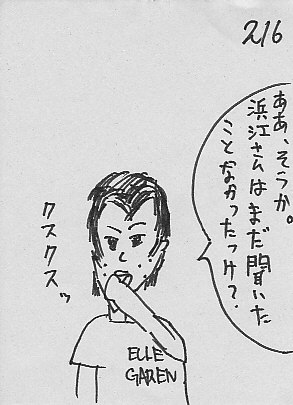 216
ああ、そうか。
浜江さんはまだ聞いた
ことなかったっけ?
クスクスッ
ELLE
GARDEN